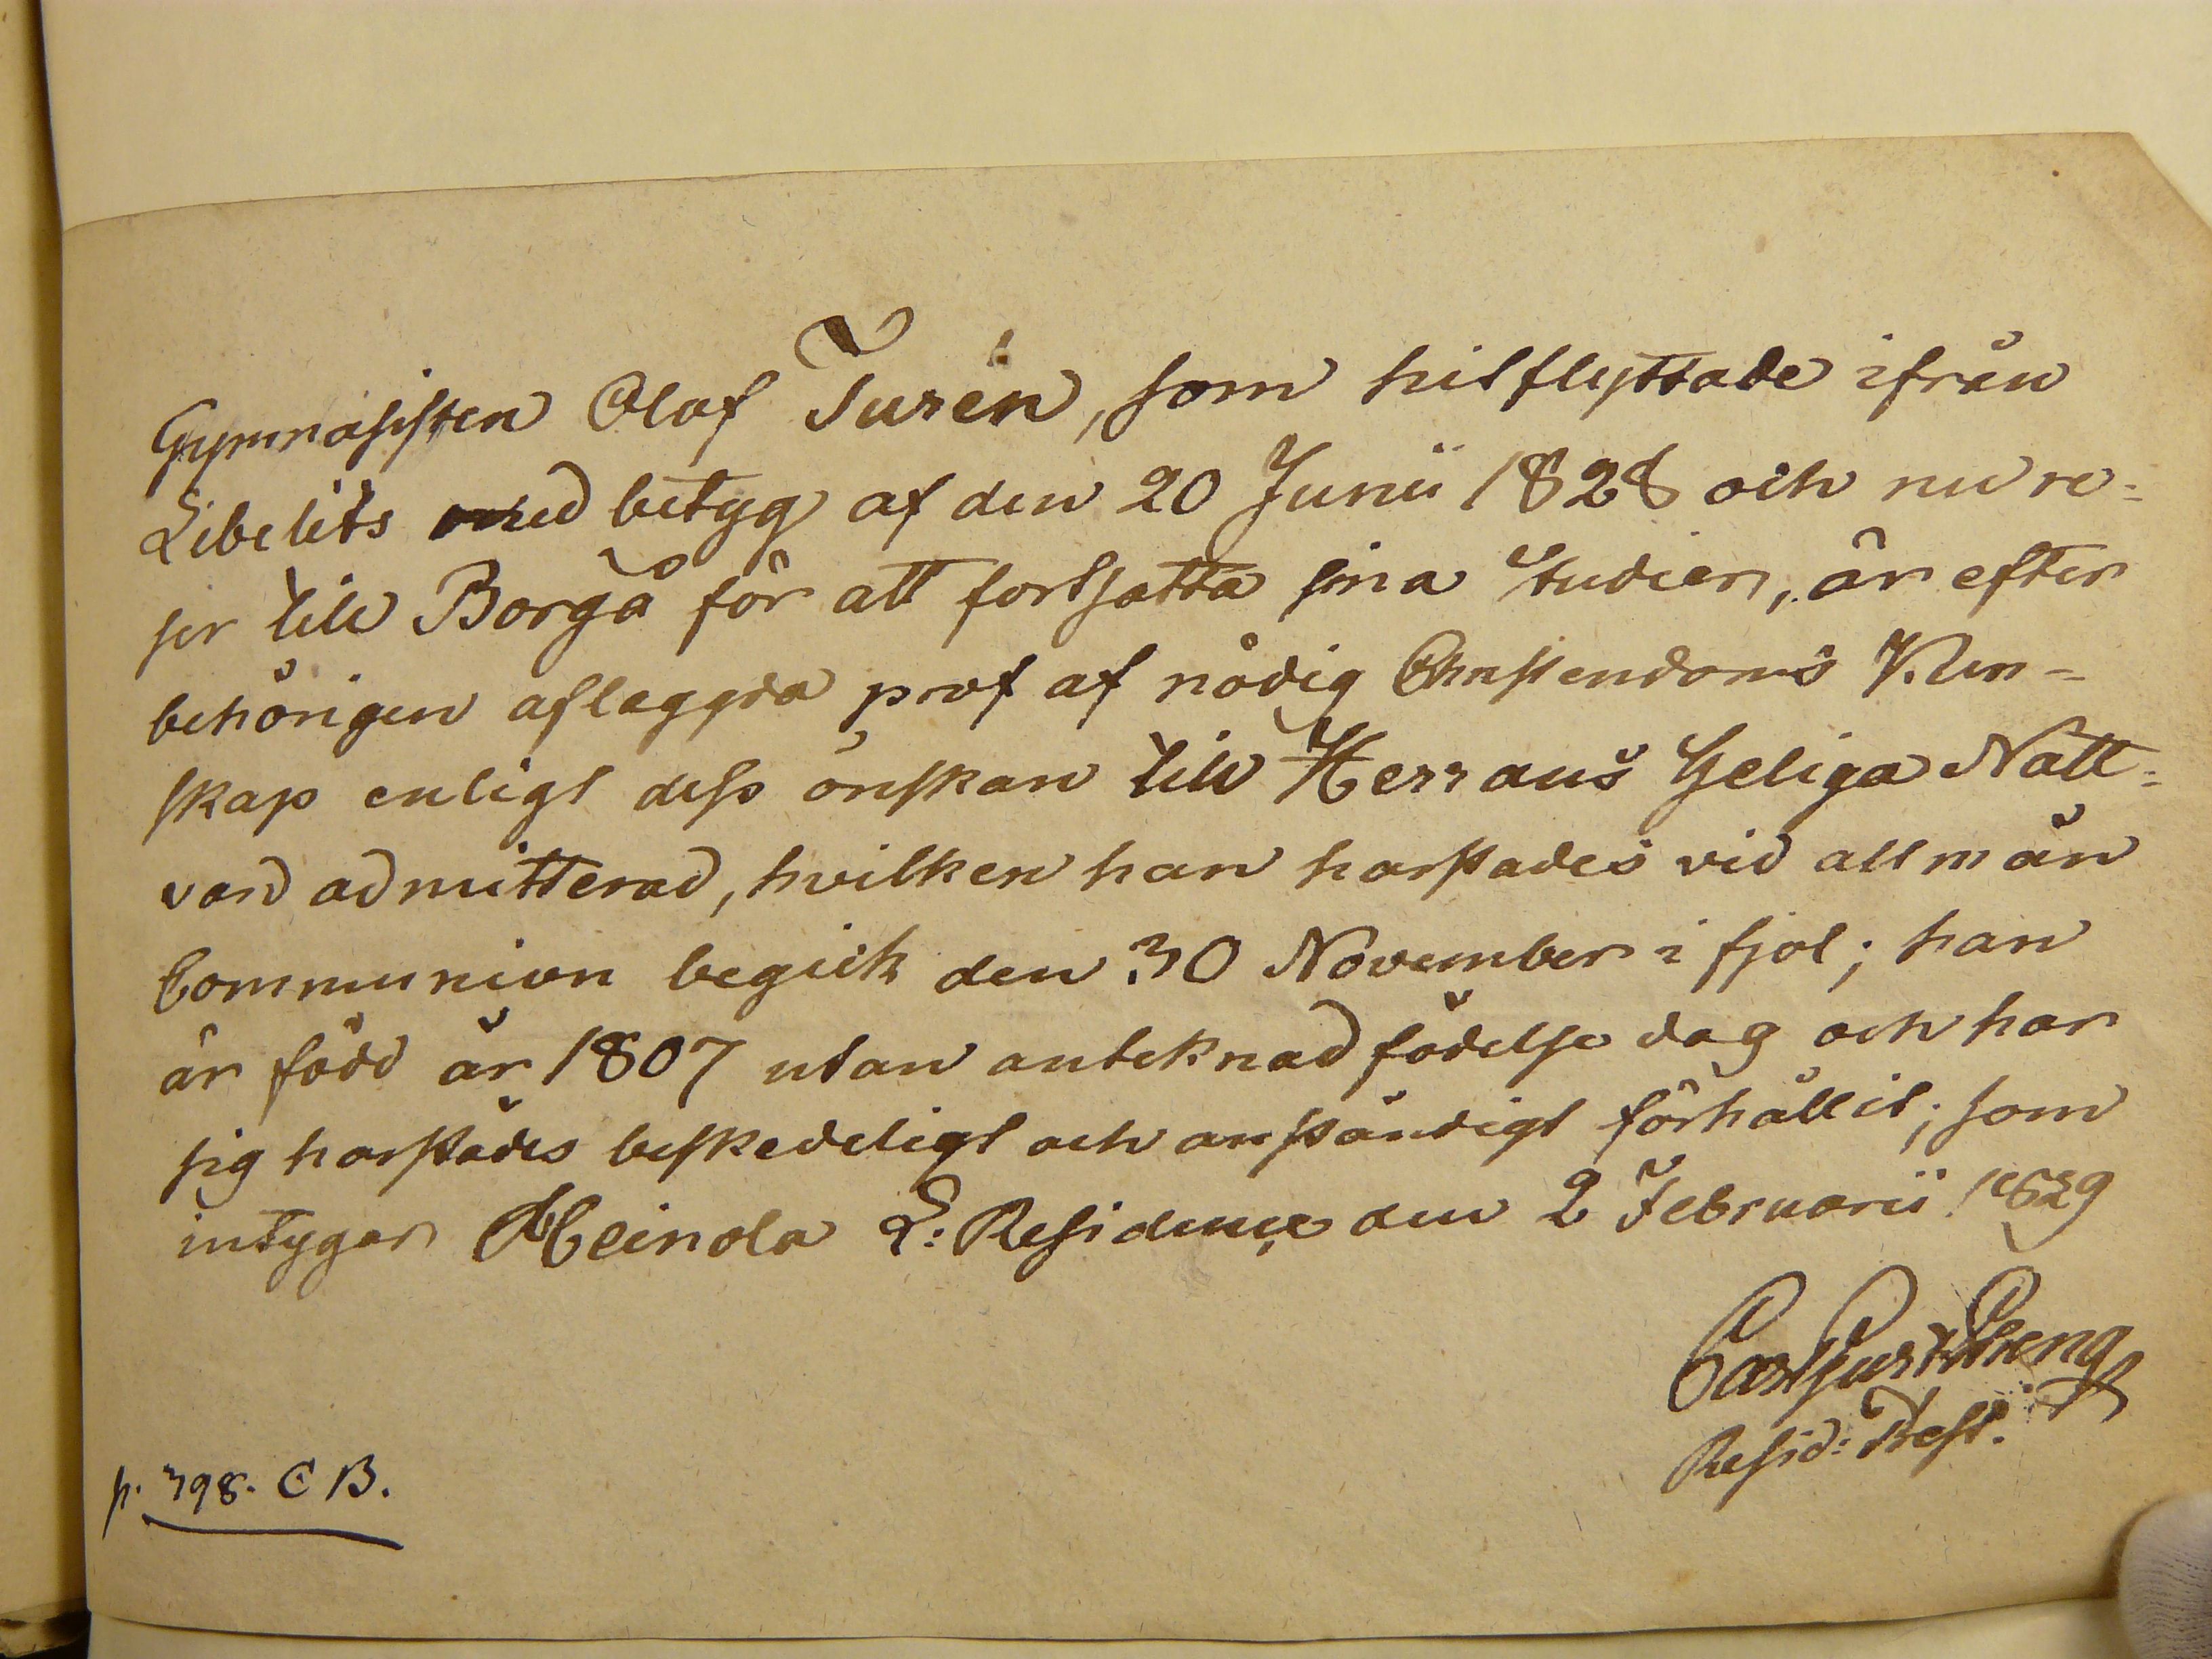 Gymnasisten Olof Turén, som hitflyttade ifrån
Libelits med betyg af den 20 Junii 1828 och nu re=
ser till Borgå för att fortsätta sina Studier, är efter
behörigen aflaggda prof af nödig Christendoms Kun=
skap enligt dess önskan till Herrans Heliga Natt=
vard admitterad, hvilken han härstädes vid allmän
Communion begick den 30 November i fjol; han
är född år 1807 utan anteknad födelse dag och har
sig härstädes beskedeligt och anständigt förhållit; som
intygar Heinola L: Residence den 2 Februarii 1829
Carl Gust
Resid: Prest.
p. 398. C B.